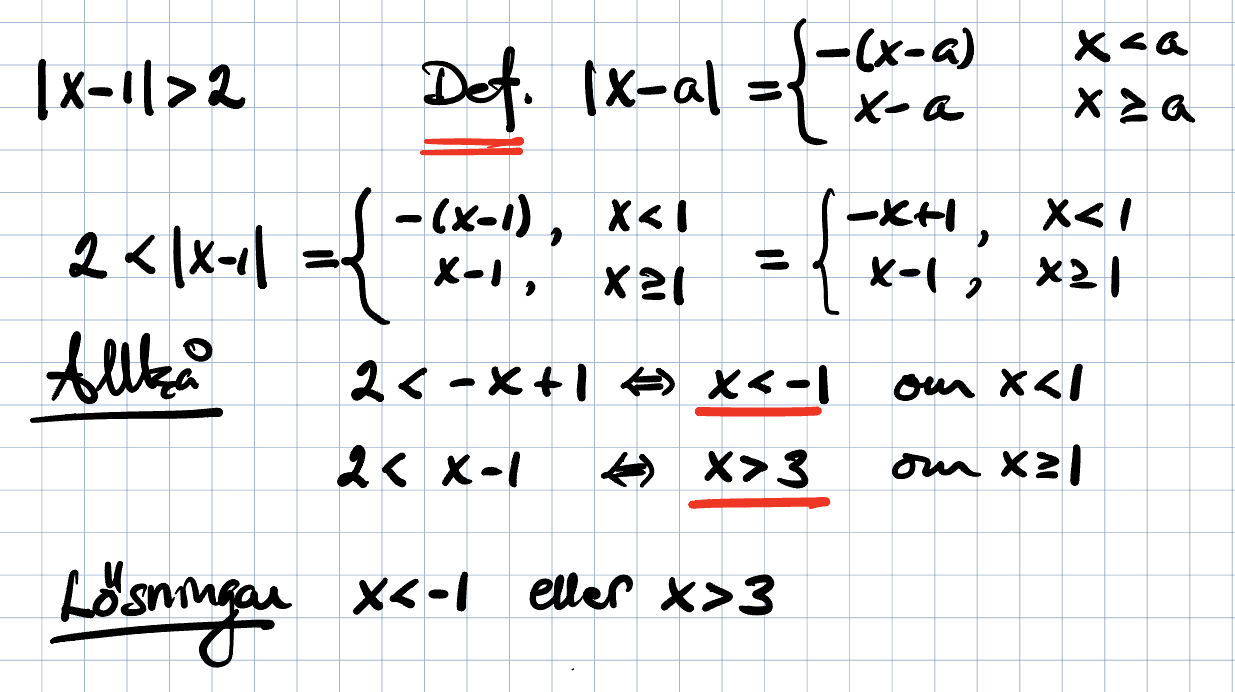 |x-1|>2 Def. |x-a| = { -(x-a) x<a
x-a x≥a
2 < |x-1| = { -(x-1), x<1 = { -x+1, x<1
x-1, x≥1 x-1, x≥1
Alltså 2 < -x+1 ⇔ x<-1 om x<1
2 < x-1 ⇔ x>3 om x≥1
Lösningar x<-1 eller x>3